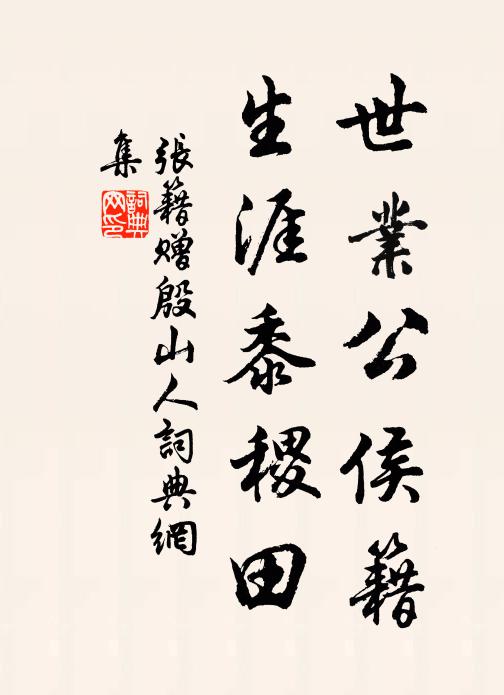 世業公侯籍
生涯黍稷田
張籍贈殷山人詞典網
集
詞典
網印